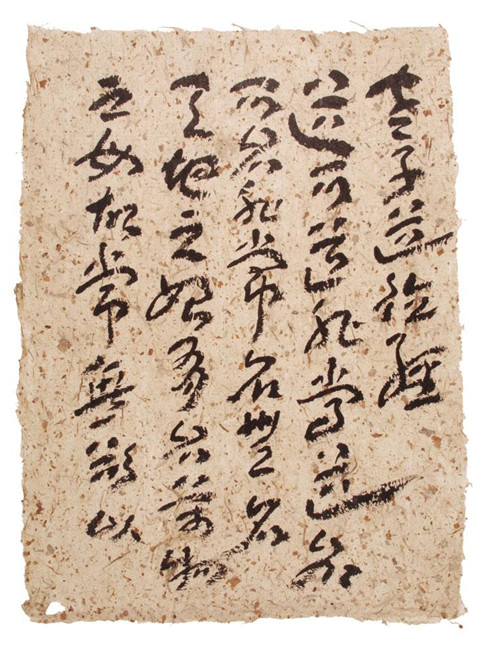 老子道德經
道可道非常道名
可名非常名無名
天地之始有名萬物
之母故常無欲以